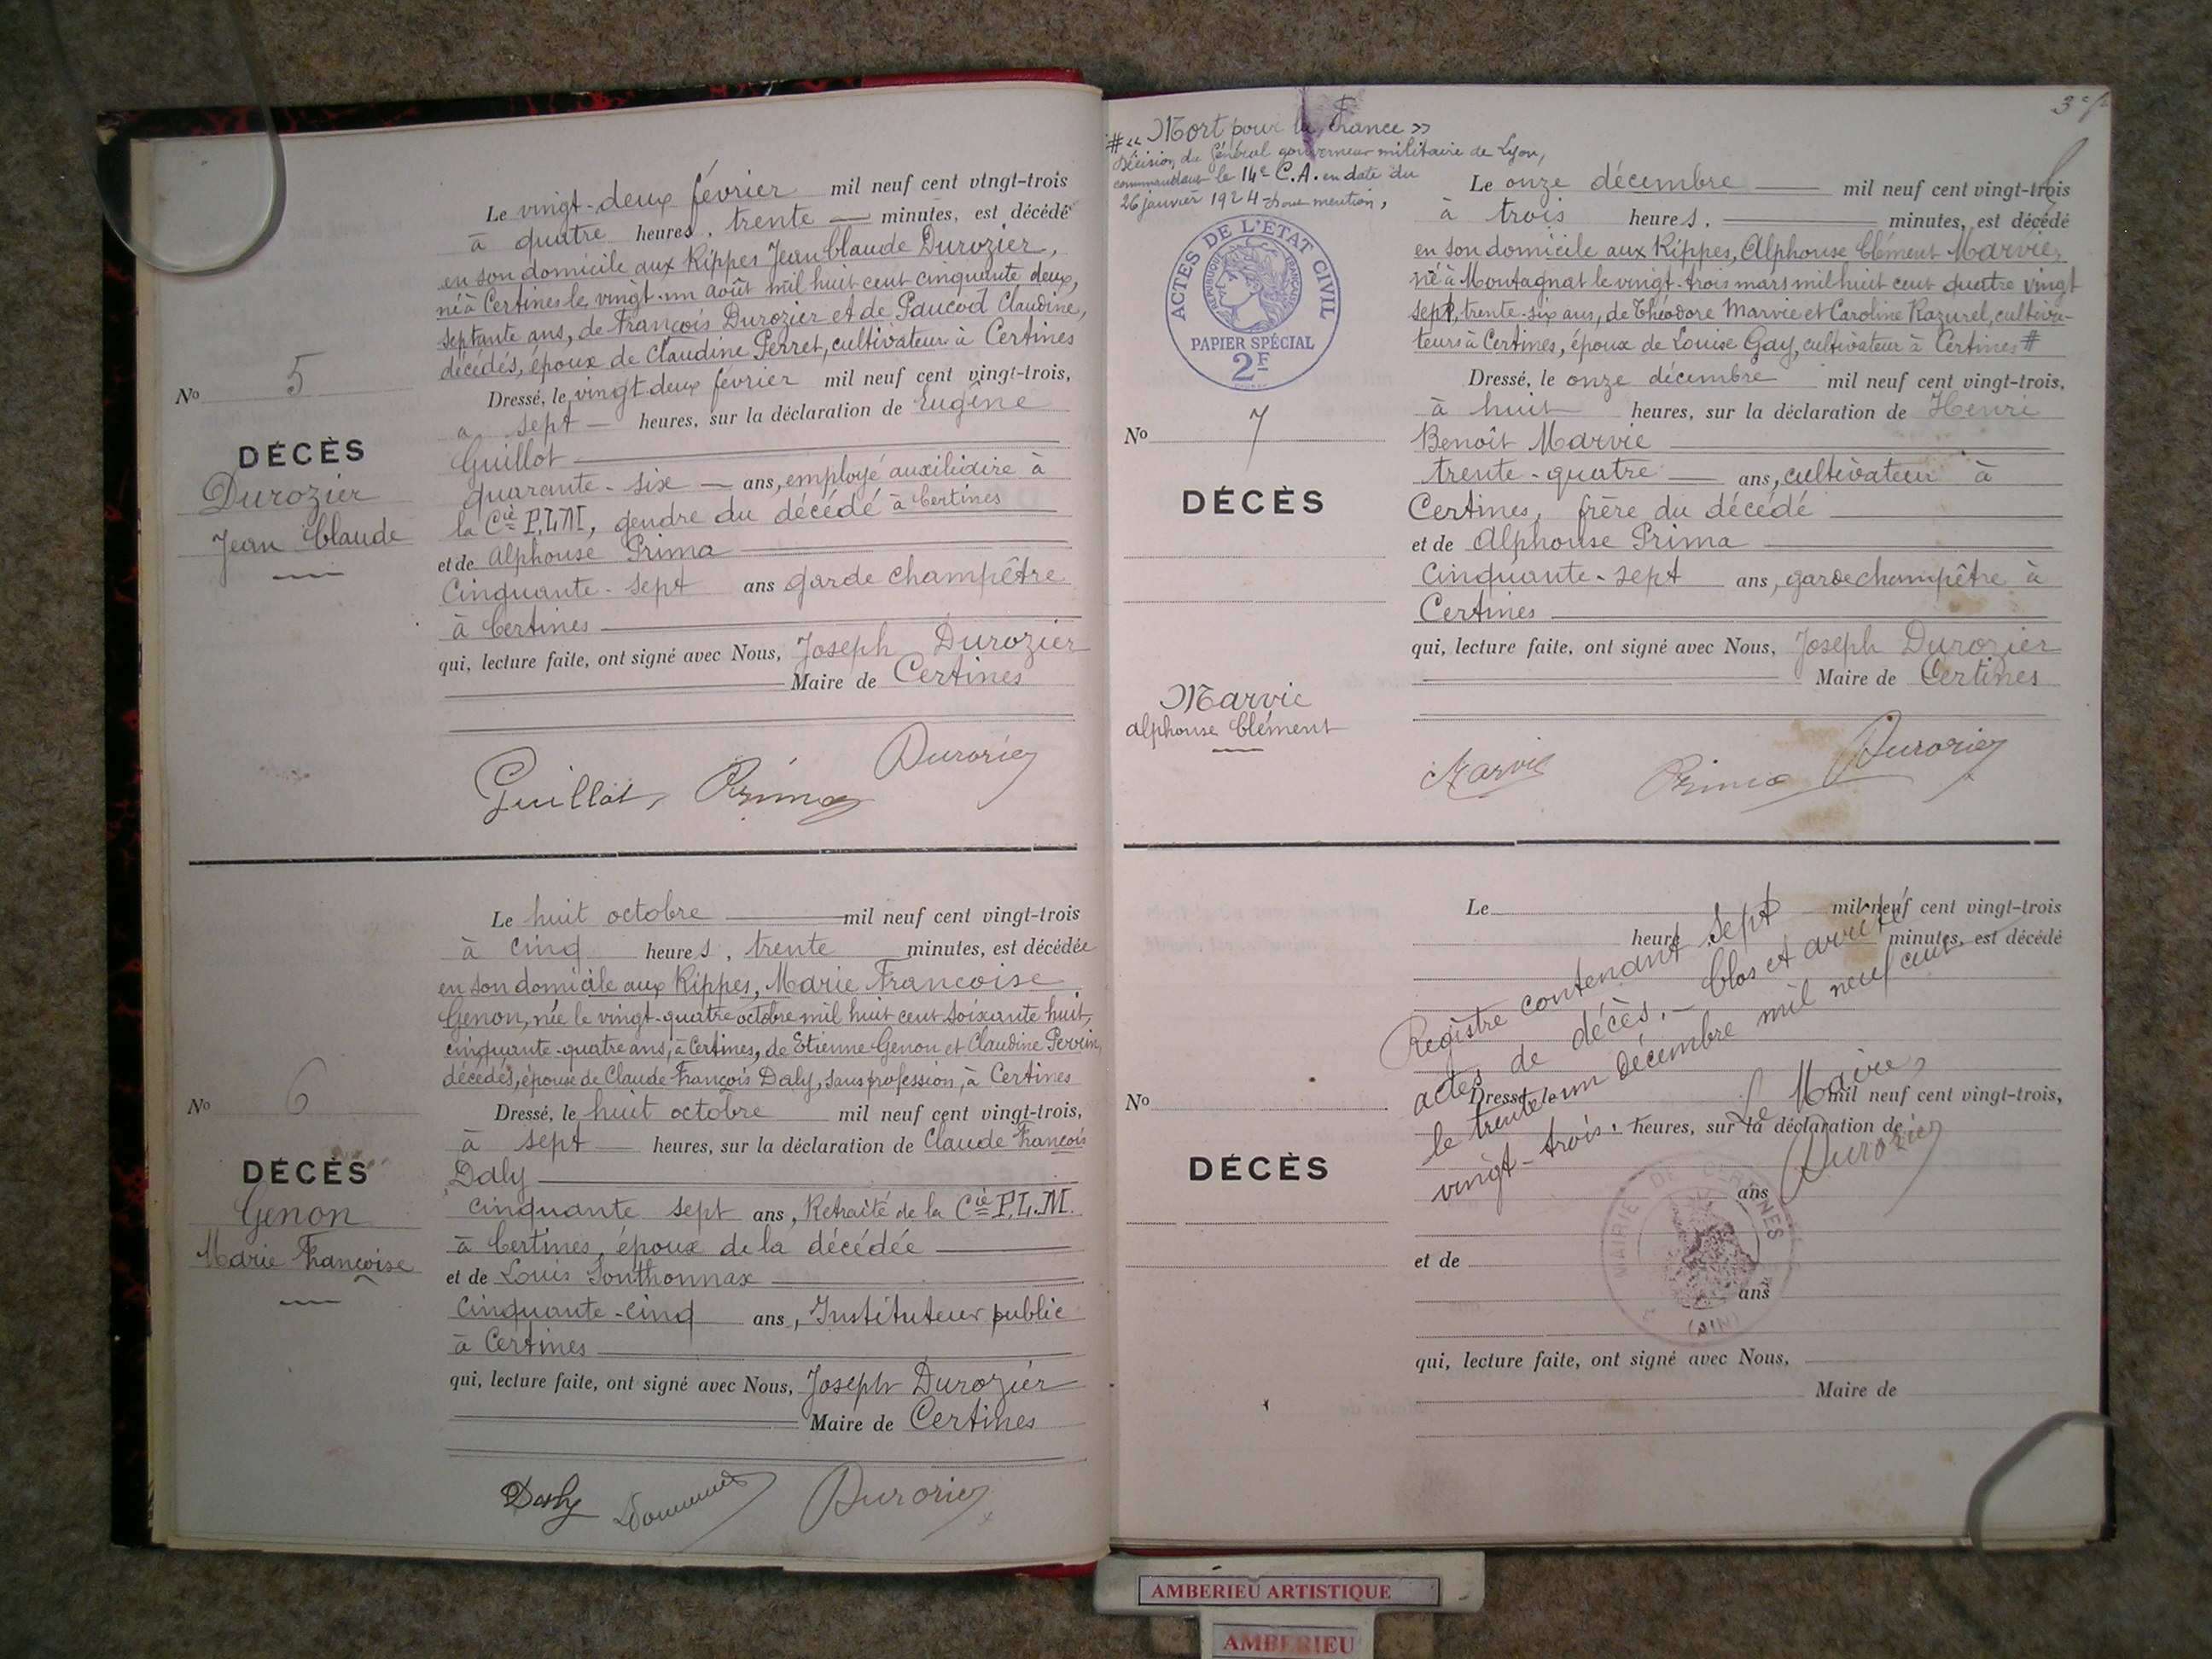 Le vingt-deux février mil neuf cent vingt-trois
à quatre heures, trente minutes, est décédé
en son domicile aux Rippes Jean Claude Durozier,
né à Certines le vingt-un août mil huit cent cinquante deux,
septante ans, de François Durozier et de Paucod Claudine,
décédés, époux de Claudine Perret, cultivateur à Certines
No 5
Dressé, le vingt deux février mil neuf cent vingt-trois,
à sept heures, sur la déclaration de Eugène
Guillot
quarante-six ans, employé auxiliaire à
la Cie P.L.M, gendre du décédé à Certines
et de Alphonse Prima
Cinquante-sept ans garde champêtre
à Certines
qui, lecture faite, ont signé avec Nous, Joseph Durozier
Maire de Certines
DÉCÈS
Durozier
Jean Claude
Guillot, Prima Durozier
Le huit octobre mil neuf cent vingt-trois
à cinq heures, trente minutes, est décédée
en son domicile aux Rippes, Marie Francoise
Genon, née le vingt-quatre octobre mil huit cent soixante huit,
cinquante-quatre ans, à Certines, de Etienne Genon et Claudine
décédés, épouse de Claude François Daly, sans profession, à Certines
No 6
Dressé, le huit octobre mil neuf cent vingt-trois,
à sept heures, sur la déclaration de Claude François
Daly
cinquante sept ans, Retraité de la Cie P.L.M.
à Certines, époux de la décédée
et de Louis Jonthonnax
Cinquante-cinq ans, Instituteur public
à Certines
qui, lecture faite, ont signé avec Nous, Joseph Durozier
Maire de Certines
DÉCÈS
Genon
Marie Françoise
Daly Durozier
#« Mort pour la France »
Décision du Général gouverneur militaire de Lyon,
commandant le 14e C.A. en date du
26 janvier 1924 mention,
ACTES DE L'ETAT CIVIL
RÉPUBLIQUE FRANÇAISE
PAPIER SPÉCIAL
2F
Le onze décembre mil neuf cent vingt-trois
à trois heures, minutes, est décédé
en son domicile aux Rippes, Alphonse Clément Marvie,
né à Montagnat le vingt-trois mars mil huit cent quatre vingt
sept, trente-six ans, de Théodore Marvie et Caroline Razurel, cultiva-
teurs à Certines, époux de Louise Gay, cultivateur à Certines #
No 7
Dressé, le onze décembre mil neuf cent vingt-trois,
à huit heures, sur la déclaration de Henri
Benoît Marvie
trente-quatre ans, cultivateur à
Certines, frère du décédé
et de Alphonse Prima
Cinquante-sept ans, garde champêtre à
Certines
qui, lecture faite, ont signé avec Nous, Joseph Durozier
Maire de Certines
DÉCÈS
Marvie
Alphonse Clément
Marvie Prima Durozier
Le mil neuf cent vingt-trois
heure minutes, est décédé
No
Dressé, le mil neuf cent vingt-trois,
heures, sur la déclaration de
DÉCÈS
ans
et de
ans
qui, lecture faite, ont signé avec Nous,
Maire de
Registre contenant sept
actes de décès. - Clos et arrêté
le trente-un décembre mil neuf cent
vingt-trois.
Le Maire,
Durozier
MAIRIE DE CERTINES
(AIN)
AMBERIEU ARTISTIQUE
AMBERIEU